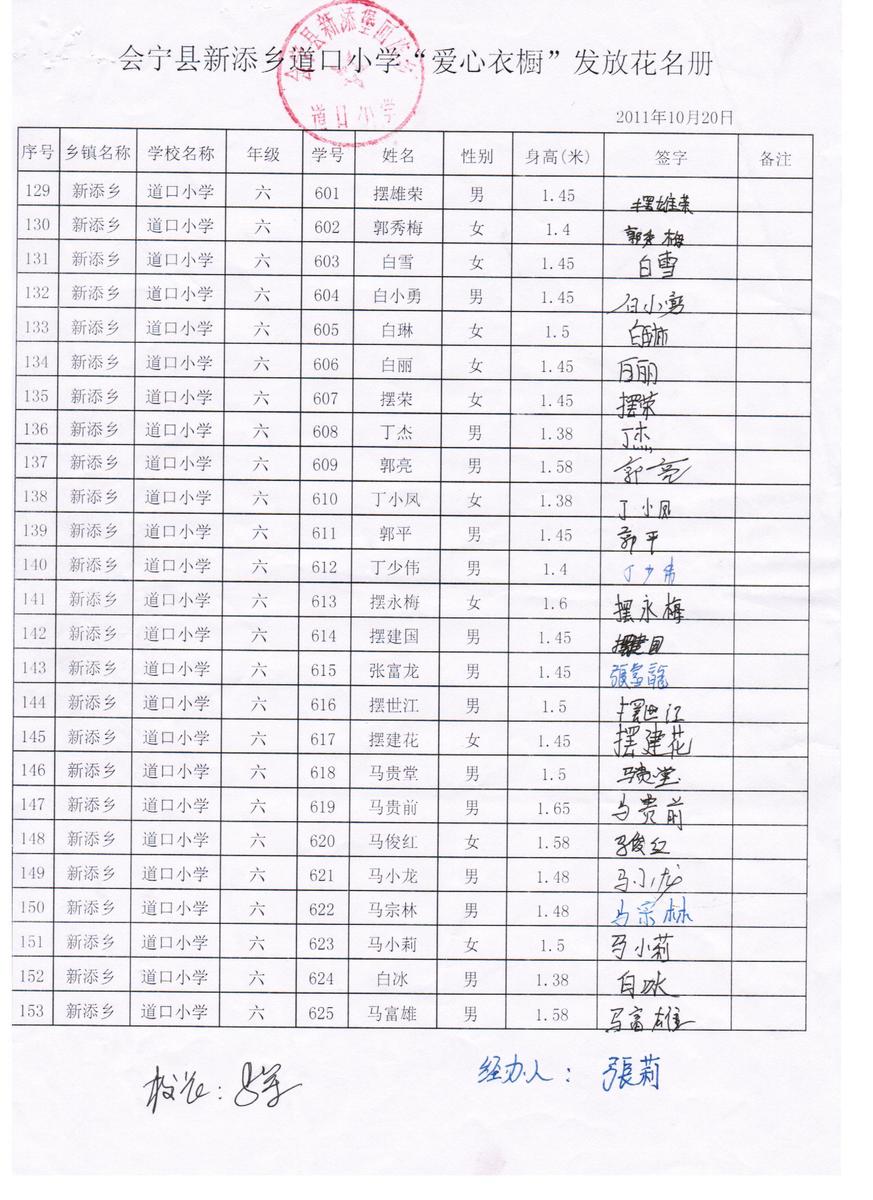 会宁县新添乡道口小学“爱心衣橱”发放花名册
道口小学
2011年10月20日
序号 乡镇名称 学校名称 年级 学号 姓名 性别 身高(米) 签字 备注
129 新添乡 道口小学 六 601 摆雄荣 男 1.45 摆雄荣
130 新添乡 道口小学 六 602 郭秀梅 女 1.4 郭秀梅
131 新添乡 道口小学 六 603 白雪 女 1.45 白雪
132 新添乡 道口小学 六 604 白小勇 男 1.45 白小勇
133 新添乡 道口小学 六 605 白琳 女 1.5 白琳
134 新添乡 道口小学 六 606 白丽 女 1.45 白丽
135 新添乡 道口小学 六 607 摆荣 女 1.45 摆荣
136 新添乡 道口小学 六 608 丁杰 男 1.38 丁杰
137 新添乡 道口小学 六 609 郭亮 男 1.58 郭亮
138 新添乡 道口小学 六 610 丁小凤 女 1.38 丁小凤
139 新添乡 道口小学 六 611 郭平 男 1.45 郭平
140 新添乡 道口小学 六 612 丁少伟 男 1.4 丁少伟
141 新添乡 道口小学 六 613 摆永梅 女 1.6 摆永梅
142 新添乡 道口小学 六 614 摆建国 男 1.45 摆建国
143 新添乡 道口小学 六 615 张富龙 男 1.45 張富龍
144 新添乡 道口小学 六 616 摆世江 男 1.5 摆世江
145 新添乡 道口小学 六 617 摆建花 女 1.45 摆建花
146 新添乡 道口小学 六 618 马贵堂 男 1.5 马贵堂
147 新添乡 道口小学 六 619 马贵前 男 1.65 马贵前
148 新添乡 道口小学 六 620 马俊红 女 1.58 马俊红
149 新添乡 道口小学 六 621 马小龙 男 1.48 马小龙
150 新添乡 道口小学 六 622 马宗林 男 1.48 马宗林
151 新添乡 道口小学 六 623 马小莉 女 1.5 马小莉
152 新添乡 道口小学 六 624 白冰 男 1.38 白冰
153 新添乡 道口小学 六 625 马富雄 男 1.58 马富雄
校长: 经办人: 張莉